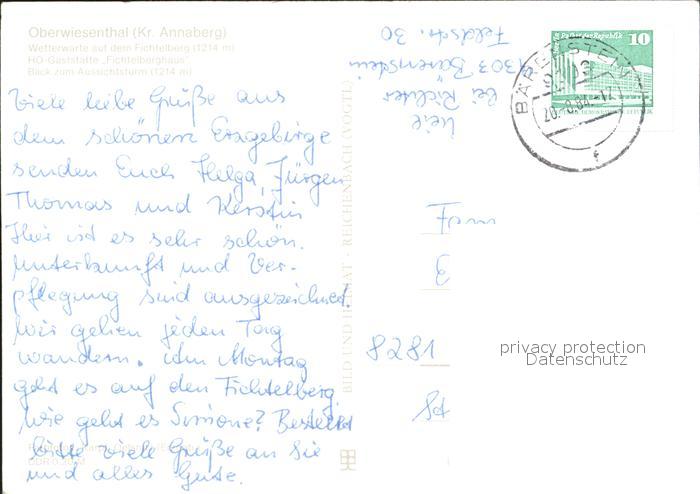 Oberwiesenthal (Kr. Annaberg)
Wetterwarte auf dem Fichtelberg (1214 m)
HO-Gaststätte „Fichtelberghaus"
Blick zum Aussichtsturm (1214 m)
Viele liebe Grüße aus
dem schönen Erzgebirge
senden Euch Helga, Jürgen
Thomas und Kerstin
Hier ist es sehr schön.
Unterkunft und Ver-
pflegung sind ausgezeichnet.
Wir gehen jeden Tag
wandern. Am Montag
geht es auf den Fichtelberg.
Wie geht es Simone? Bestellt
bitte viele Grüße an Sie
und alles Gute.
BILD UND HEIMAT · REICHENBACH (VOGTL
bei Richter
9303 Bärenstein
Feldstr. 30
Palast der Republik 10
BÄRENSTEIN
9303
Fam
8281
privacy protection
Datenschutz